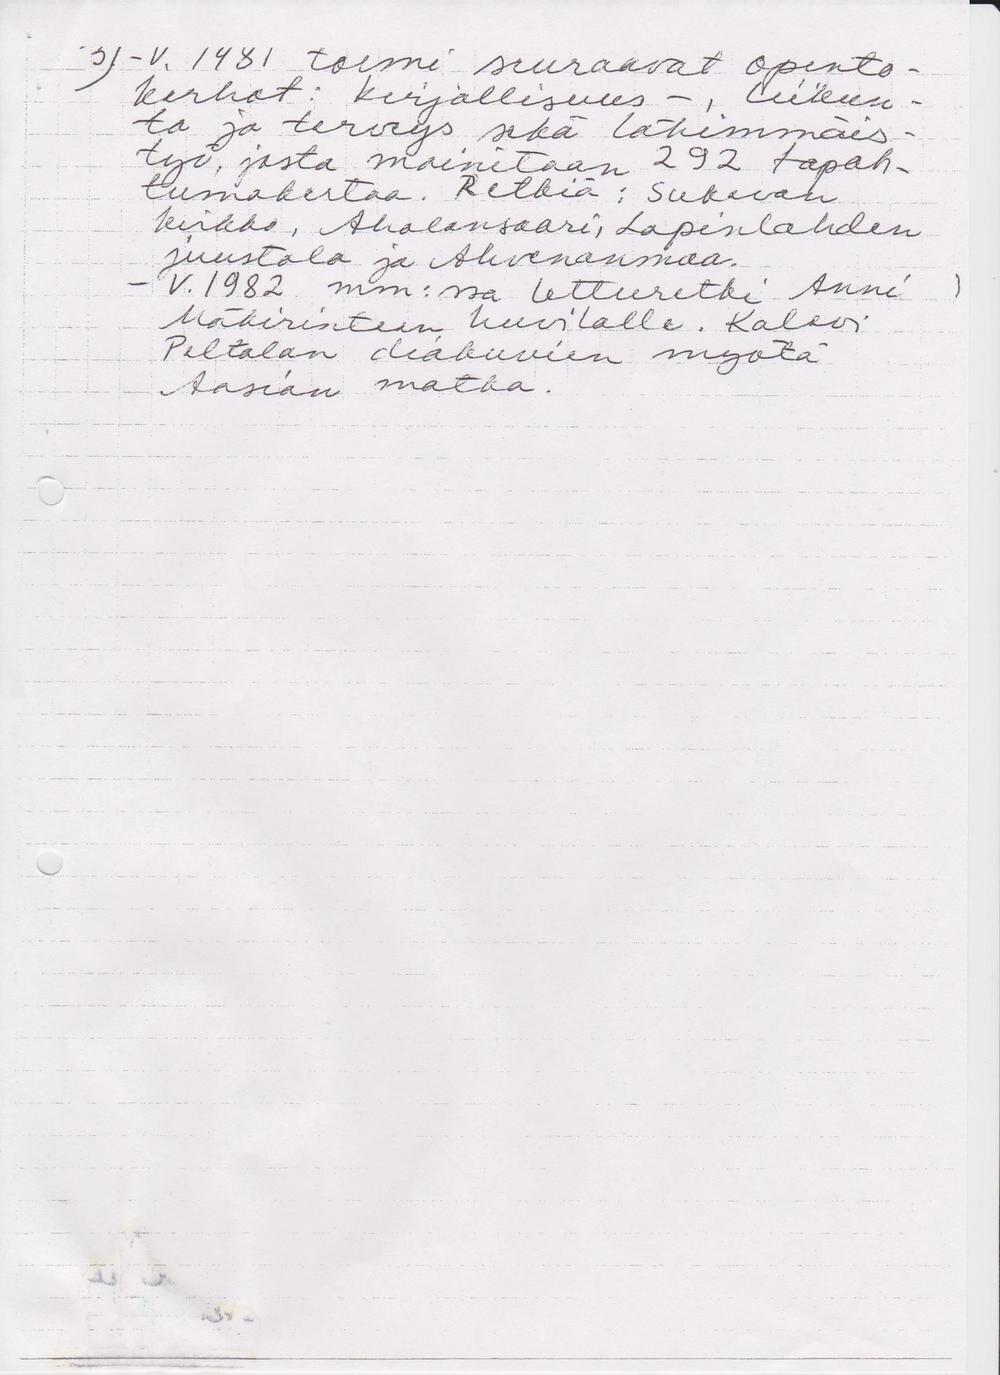 5) - V. 1981 toimi seuraavat opinto-
kerhot: kirjallisuus -, liikun-
ta ja terveys sekä lähimmäis-
työ, josta mainitaan 292 tapah-
tumakertaa. Retkiä: Sukevan
kirkko, Aholansaari, Lapinlahden
juustola ja Ahvenanmaa.
- V. 1982 mm:ssa letturetki Anni
Mäkirinteen huvilalle. Kalevi
Peltolan diakuvien myötä
Aasian matka.